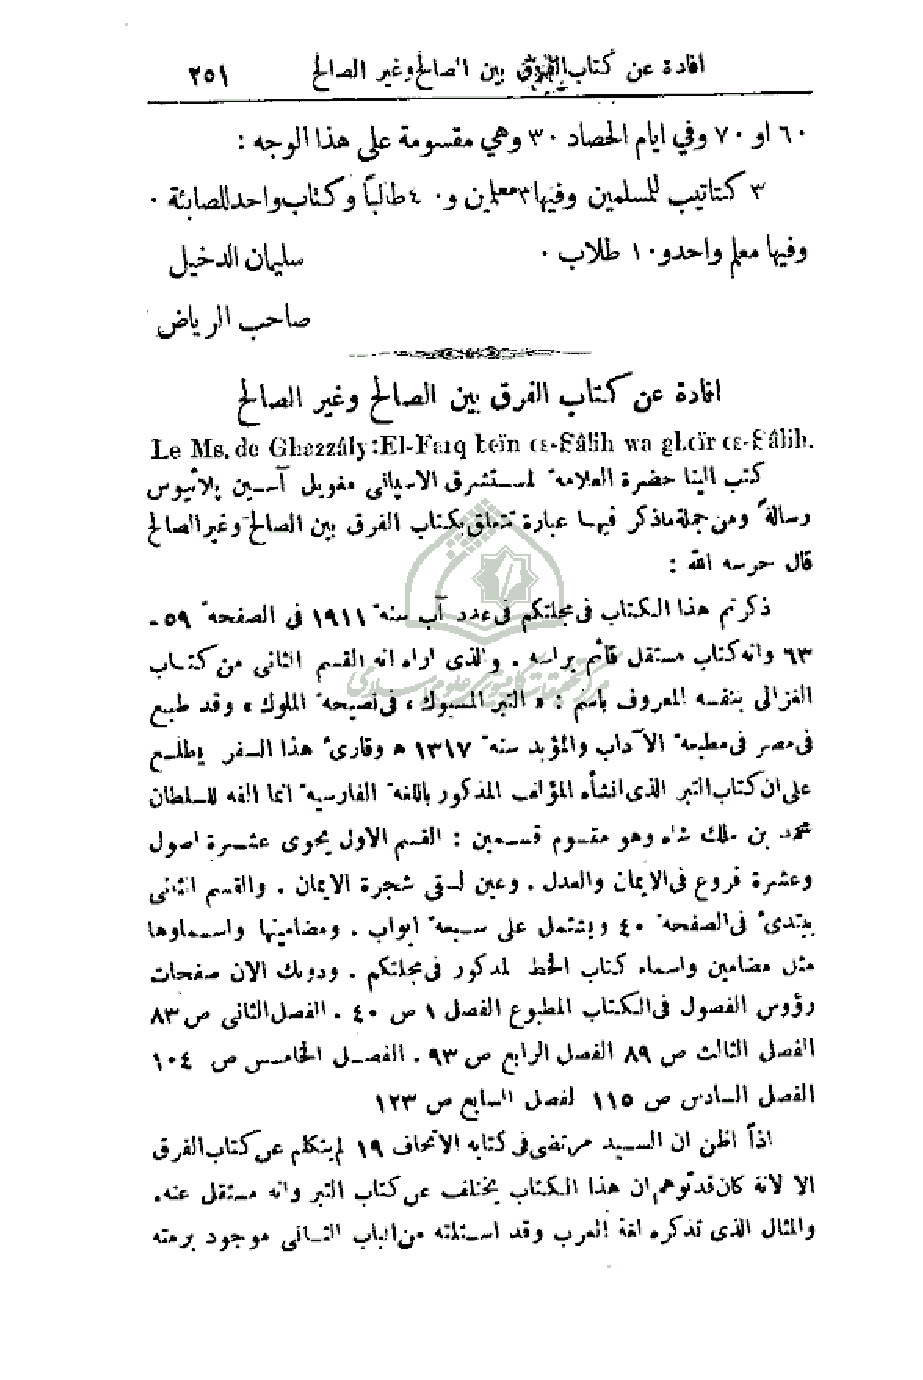 افادة عن كتاب الفرق بين الصالح وغير الصالح ٢٥١
٦٠ او ٧٠ وفي ايام الحصاد ٣٠ وهي مقسومة على هذا الوجه :
٣ كتاتيب للمسلمين وفيها ٣ معلمين و ٤٠ طالباً وكتاب واحد للصابئة ٠
وفيها معلم واحد و ١٠ طلاب ٠ سليمان الدخيل
صاحب الرياض
افادة عن كتاب الفرق بين الصالح وغير الصالح
Le Ms. de Ghazzâly : El-Farq beïn es-Sâlih wa gheïr es-Sâlih.
كتب الينا حضرة العلامة المستشرق الاسپاني ميغويل آسين پلاثيوس
رسالةً ومن جملة ماذكر فيها عبارة تتعلق بكتاب الفرق بين الصالح وغير الصالح
قال حرسه الله :
ذكرتم هذا الكتاب في مجلتكم في عدد آب سنة ١٩١١ في الصفحة ٥٩ -
٦٣ وانه كتاب مستقل قائم براسه . والذي اراه انه القسم الثاني من كتاب
الغزالي بنفسه المعروف باسم : « التبر المسبوك ، في نصيحة الملوك » وقد طبع
في مصر في مطبعة الآداب والمؤيد سنة ١٣١٧ ه وقارئ هذا السفر يطلع
على ان كتاب التبر الذي انشأه المؤلف المذكور باللغة الفارسية انما الفه للسلطان
محمد بن ملك شاه وهو مقسوم قسمين : القسم الاول يحوى عشرة اصول
وعشرة فروع في الايمان والعدل . وعين لسقي شجرة الايمان . والقسم الثاني
يبتدئ في الصفحة ٤٠ ويشتمل على سبعة ابواب . ومضامينها واسماوها
مثل مضامين واسماء كتاب الخط المذكور في مجلتكم . ودونك الآن صفحات
رؤوس الفصول في الكتاب المطبوع الفصل ١ ص ٤٠ . الفصل الثاني ص ٨٣
الفصل الثالث ص ٨٩ الفصل الرابع ص ٩٣ . الفصل الخامس ص ١٠٤
الفصل السادس ص ١١٥ الفصل السابع ص ١٢٣
اذاً اظن ان السيد مرتضى في كتابه الاتحاف ١٩ لم يتكلم عن كتاب الفرق
الا لانه كان قد توهم ان هذا الكتاب يختلف عن كتاب التبر وانه مستقل عنه.
والمثال الذي تذكره لغة العرب وقد استلته من الباب الثاني موجود برمته